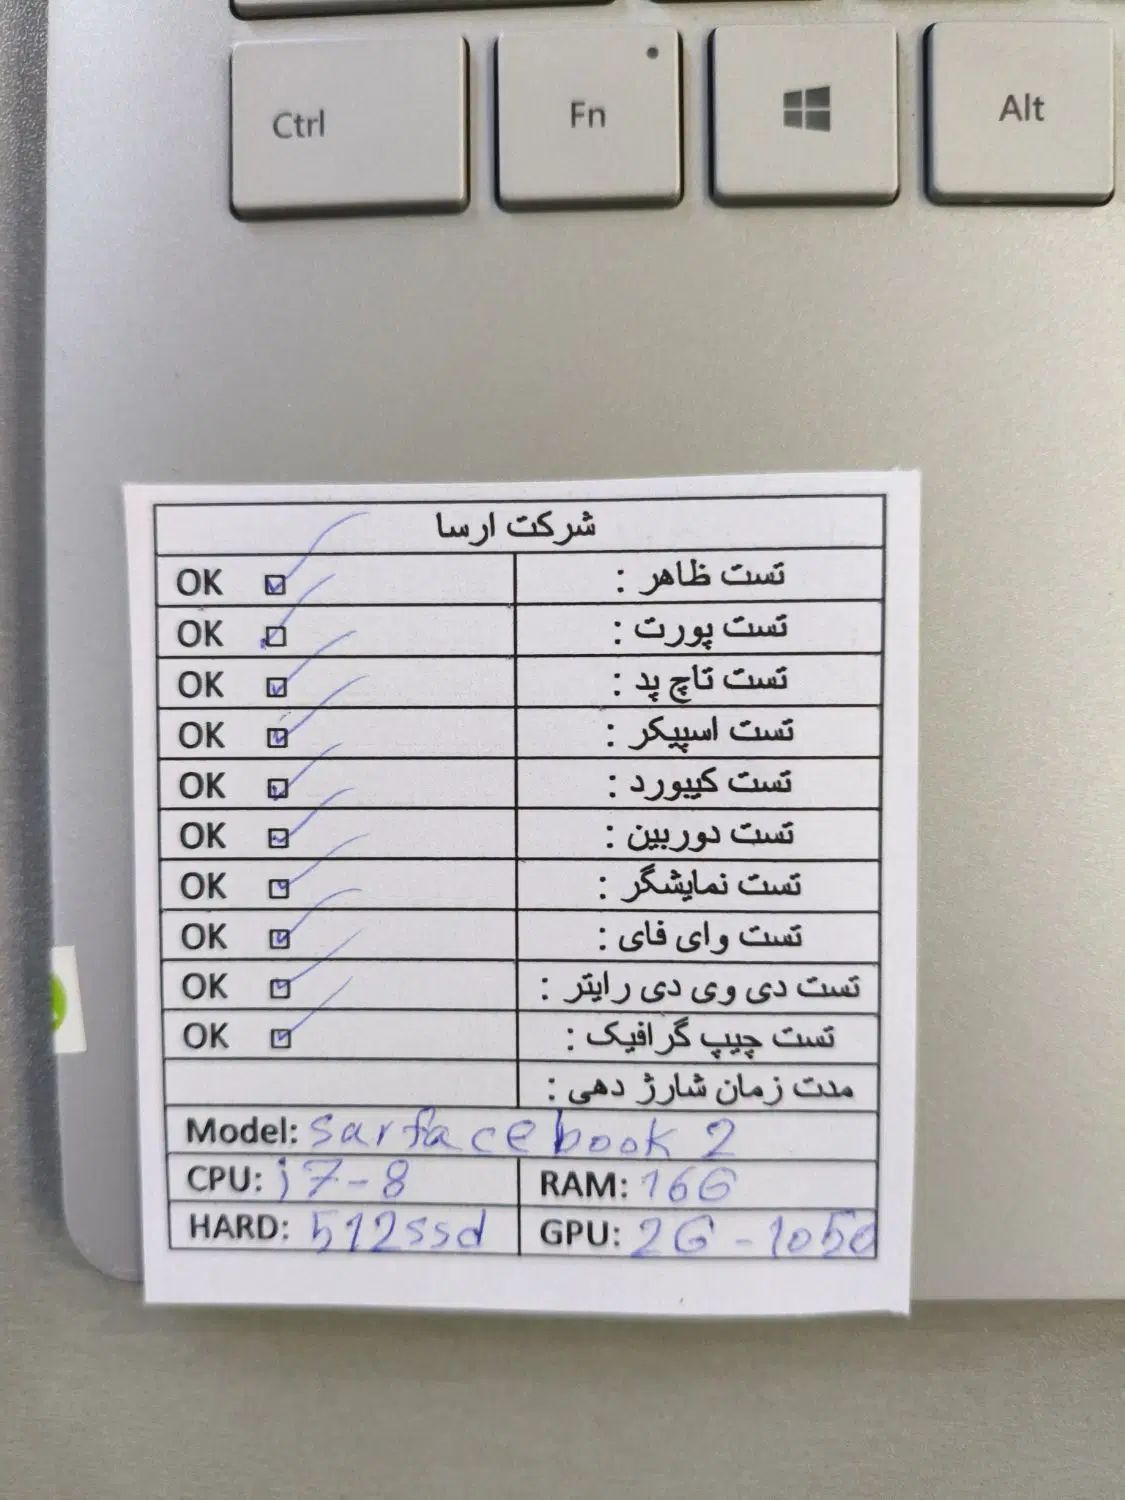 Ctrl Fn Alt
شرکت ارسا
تست ظاهر : OK
تست پورت : OK
تست تاچ پد : OK
تست اسپیکر : OK
تست کیبورد : OK
تست دوربین : OK
تست نمایشگر : OK
تست وای فای : OK
تست دی وی دی رایتر : OK
تست چیپ گرافیک : OK
مدت زمان شارژ دهی :
Model: sarface book 2
CPU: i7-8 RAM: 16G
HARD: 512ssd GPU: 2G-1050